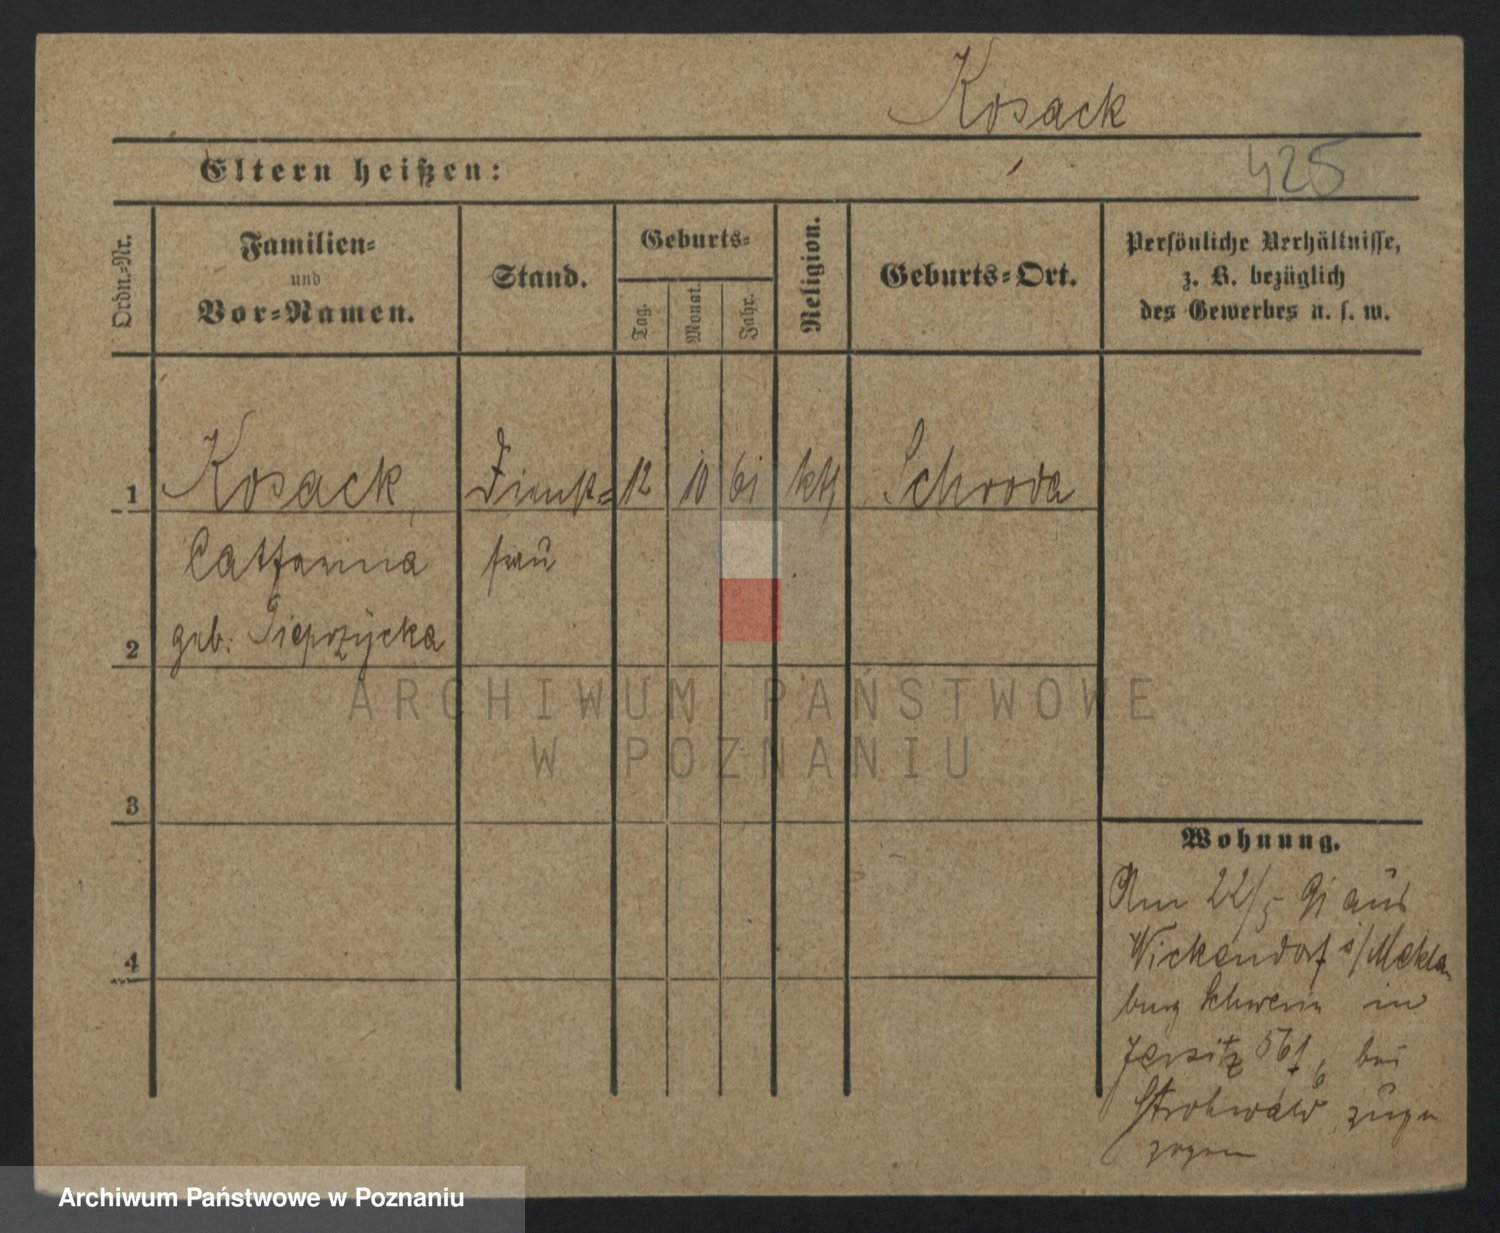 Kosack
Eltern heißen:
425
Ordn.-Nr.
Familien-
und
Vor-Namen.
Stand.
Geburts-
Tag.
Monat.
Jahr.
Religion.
Geburts-Ort.
Persönliche Verhältnisse,
z. B. bezüglich
des Gewerbes u. s. w.
1 Kosack, Dienst= 12 10 61 kth Schroda
Catharina frau
2 geb.
3
4
Wohnung.
Am 22/5 91 aus
Wickendorf i/Meklen
burg Schwerin in
Jersitz bei
Strohwald zuge
zogen
ARCHIWUM PAŃSTWOWE
W POZNANIU
Archiwum Państwowe w Poznaniu